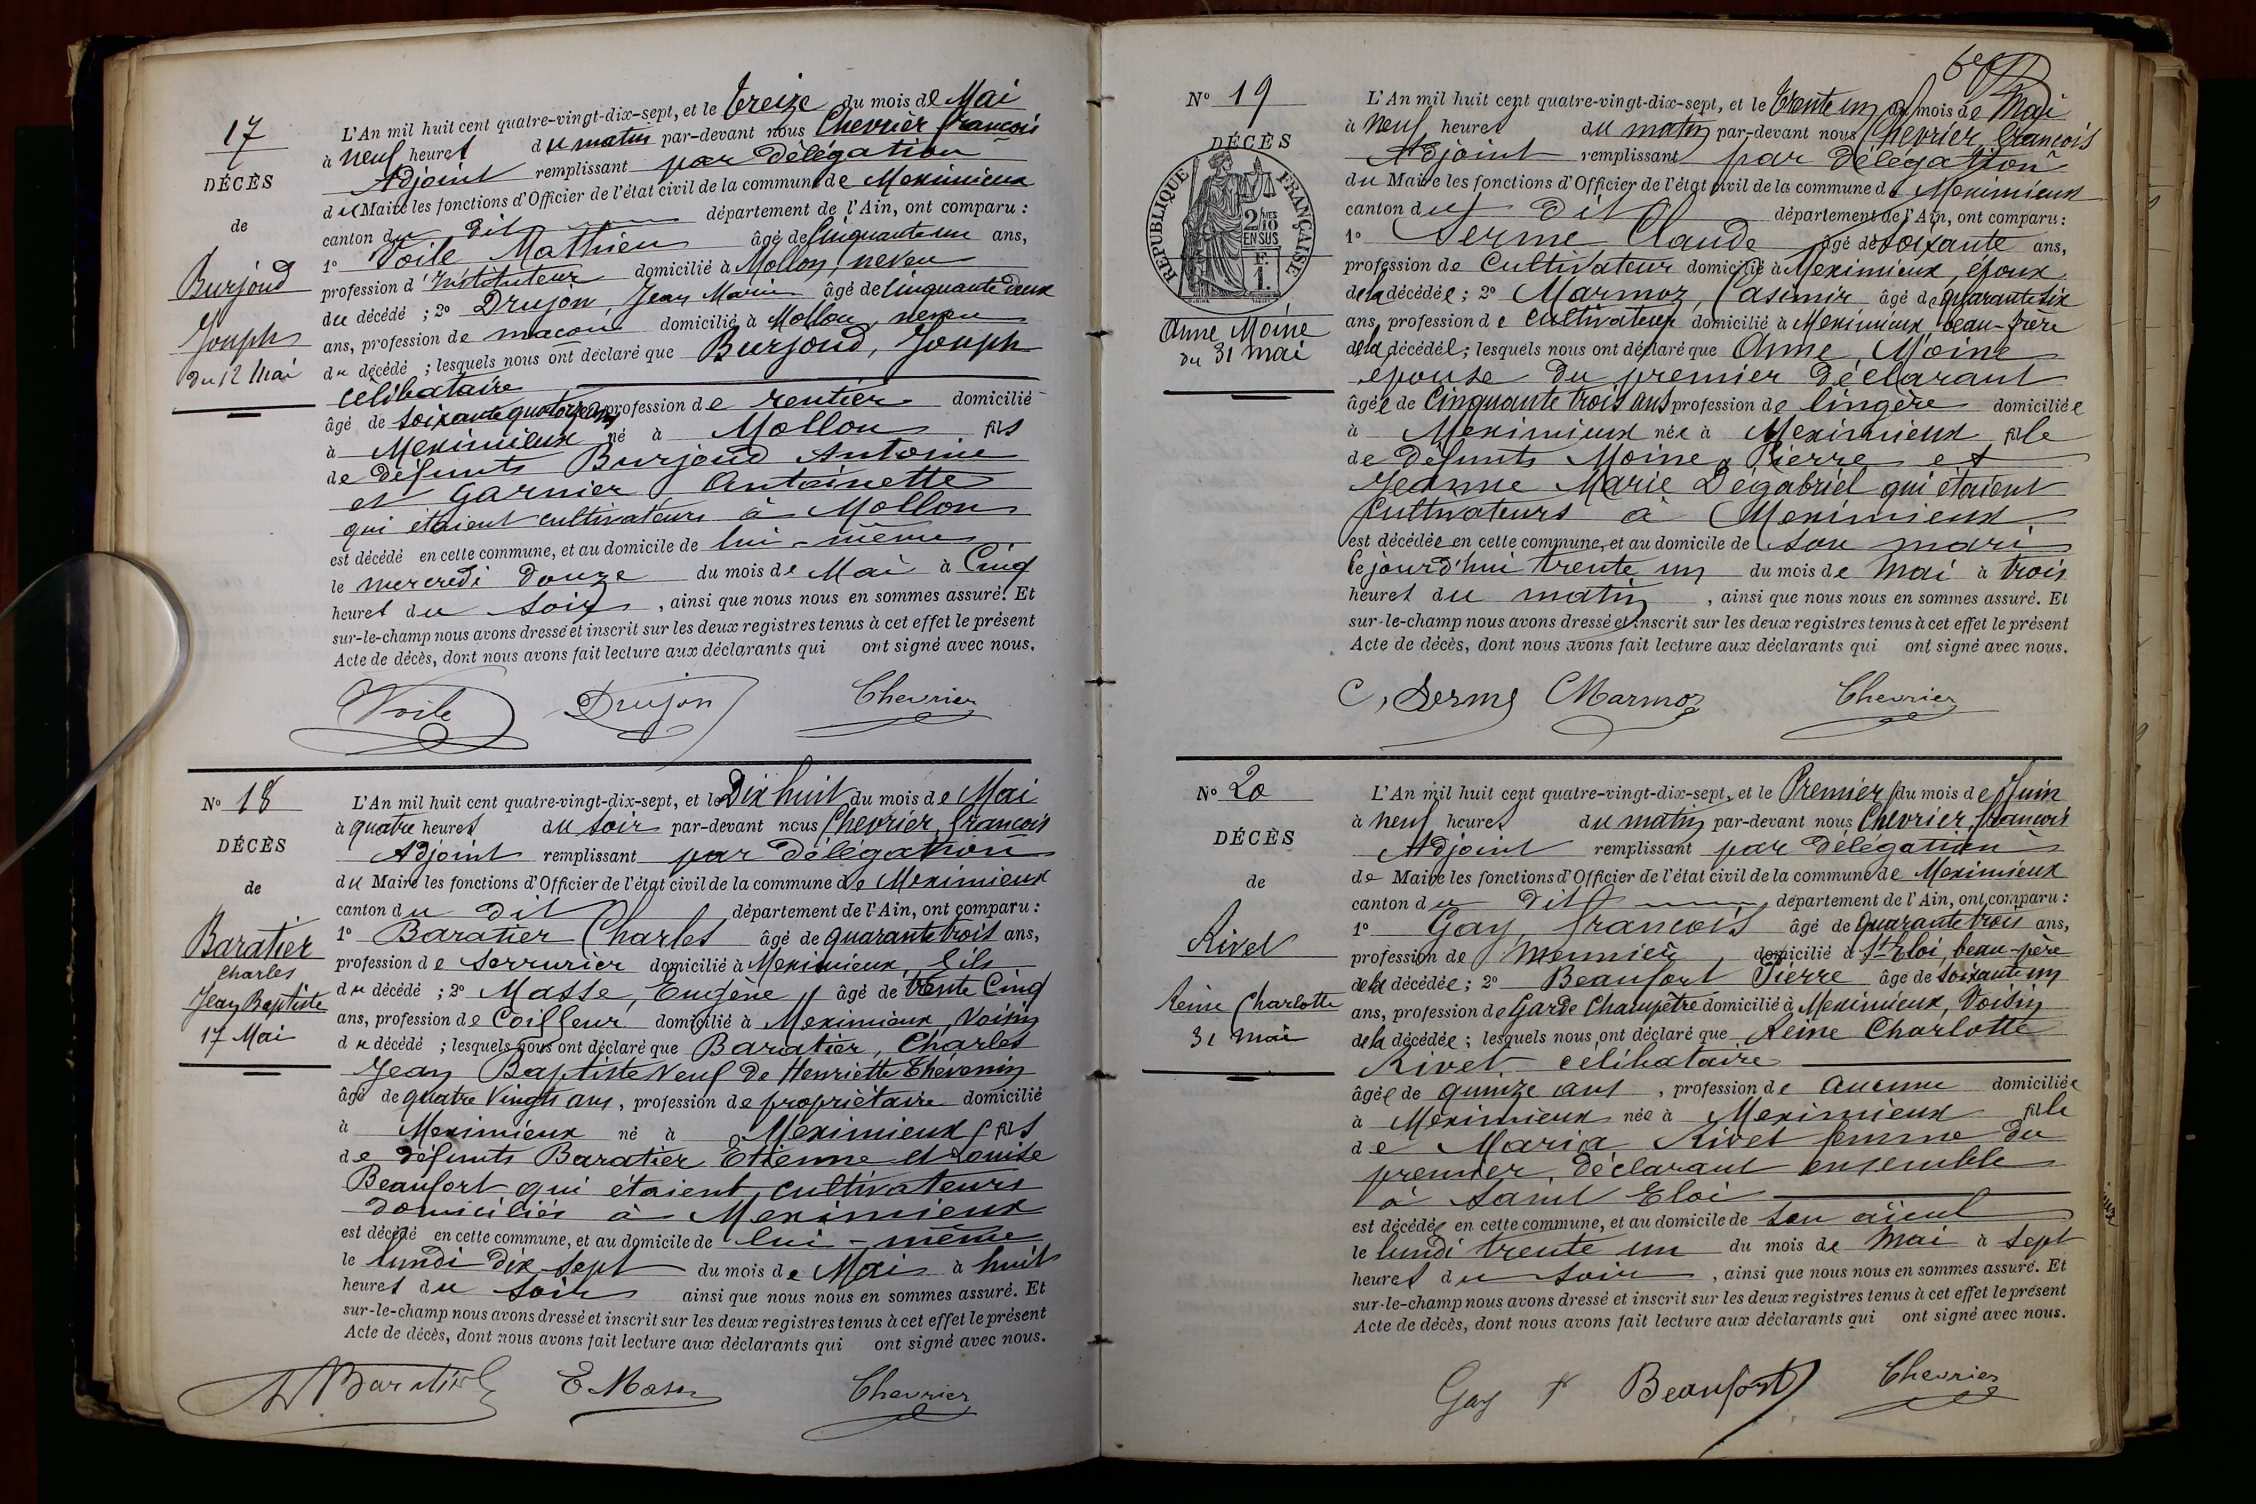 17
DÉCÈS
de
Burjoud
Joseph
Du 12 Mai
L'An mil huit cent quatre-vingt-dix-sept, et le treize du mois de Mai
à neuf heures du matin par-devant nous Chevrier françois
Adjoint remplissant par Délégation
du Maire les fonctions d'Officier de l'état civil de la commune de Meximieux
canton du dit département de l'Ain, ont comparu :
1° Voile Mathieu âgé de Cinquante un ans,
profession d'Instituteur domicilié à Mollon, neveu
du décédé ; 2° Drujon, Jean Marie âgé de Cinquante deux
ans, profession de maçon domicilié à Mollon, neveu
du décédé ; lesquels nous ont déclaré que Burjoud, Joseph
célibataire
âgé de soixante quatorze ans profession de rentier domicilié
à Meximieux né à Mollon fils
de défunts Burjoud Antoine
et Garnier Antoinette
qui étaient cultivateurs à Mollon
est décédé en cette commune, et au domicile de lui-même
le mercredi douze du mois de Mai à Cinq
heures du soir, ainsi que nous nous en sommes assuré. Et
sur-le-champ nous avons dressé et inscrit sur les deux registres tenus à cet effet le présent
Acte de décès, dont nous avons fait lecture aux déclarants qui ont signé avec nous.
Voile Drujon Chevrier
N° 18
DÉCÈS
de
Baratier
Charles
Jean Baptiste
17 Mai
L'An mil huit cent quatre-vingt-dix-sept, et le Dix huit du mois de Mai
à quatre heures du soir par-devant nous Chevrier, françois
Adjoint remplissant par Délégation
du Maire les fonctions d'Officier de l'état civil de la commune de Meximieux
canton du dit département de l'Ain, ont comparu :
1° Baratier Charles âgé de quarante trois ans,
profession de serrurier domicilié à Meximieux, fils
du décédé ; 2° Masse, Eugène âgé de trente Cinq
ans, profession de Coiffeur domicilié à Meximieux, Voisin
du décédé ; lesquels nous ont déclaré que Baratier, Charles
Jean Baptiste Veuf de Henriette Thévenin
âgé de quatre Vingts ans, profession de propriétaire domicilié
à Meximieux né à Meximieux fils
de défunts Baratier Etienne et Louise
Beaufort qui étaient cultivateurs
domiciliés à Meximieux
est décédé en cette commune, et au domicile de lui-même
le lundi dix sept du mois de Mai à huit
heures du soir ainsi que nous nous en sommes assuré. Et
sur-le-champ nous avons dressé et inscrit sur les deux registres tenus à cet effet le présent
Acte de décès, dont nous avons fait lecture aux déclarants qui ont signé avec nous.
Baratier E Masse Chevrier
N° 19
DÉCÈS
REPUBLIQUE FRANÇAISE
2/10MES
EN SUS
F.
1.
Anne Moine
Du 31 mai
L'An mil huit cent quatre-vingt-dix-sept, et le trente un du mois de Mai
à neuf heures du matin par-devant nous Chevrier françois
Adjoint remplissant par Délégation
du Maire les fonctions d'Officier de l'état civil de la commune de Meximieux
canton du dit département de l'Ain, ont comparu :
1° Serme Claude âgé de soixante ans,
profession de Cultivateur domicilié à Meximieux, époux
de la décédée ; 2° Marmoz, Casimir âgé de quarante six
ans, profession de cultivateur domicilié à Meximieux, beau-frère
de la décédée ; lesquels nous ont déclaré que Anne, Moine
épouse du premier déclarant
âgée de Cinquante trois ans profession de lingère domiciliée
à Meximieux née à Meximieux fille
de défunts Moine, Pierre et
Jeanne Marie Dégabriel qui étaient
Cultivateurs à Meximieux
est décédée en cette commune, et au domicile de son mari
le jourd'hui trente un du mois de Mai à trois
heures du matin, ainsi que nous nous en sommes assuré. Et
sur-le-champ nous avons dressé et inscrit sur les deux registres tenus à cet effet le présent
Acte de décès, dont nous avons fait lecture aux déclarants qui ont signé avec nous.
C, Serme CMarmoz Chevrier
N° 20
DÉCÈS
de
Rivet
Reine Charlotte
31 mai
L'An mil huit cent quatre-vingt-dix-sept, et le Premier du mois de Juin
à neuf heures du matin par-devant nous Chevrier, françois
Adjoint remplissant par délégation
de Maire les fonctions d'Officier de l'état civil de la commune de Meximieux
canton du dit département de l'Ain, ont comparu :
1° Gay, françois âgé de quarante trois ans,
profession de Meunier, domicilié à St Eloi, beau-père
de la décédée ; 2° Beaufort Pierre âgé de soixante un
ans, profession de Garde Champêtre domicilié à Meximieux, Voisin
de la décédée ; lesquels nous ont déclaré que Reine Charlotte
Rivet célibataire
âgée de quinze ans, profession de aucune domiciliée
à Meximieux née à Meximieux fille
de Maria Rivet femme du
premier déclarant ensemble
à Saint Eloi
est décédée en cette commune, et au domicile de son aïeul
le lundi trente un du mois de Mai à sept
heures du soir, ainsi que nous nous en sommes assuré. Et
sur-le-champ nous avons dressé et inscrit sur les deux registres tenus à cet effet le présent
Acte de décès, dont nous avons fait lecture aux déclarants qui ont signé avec nous.
Gay Beaufort Chevrier